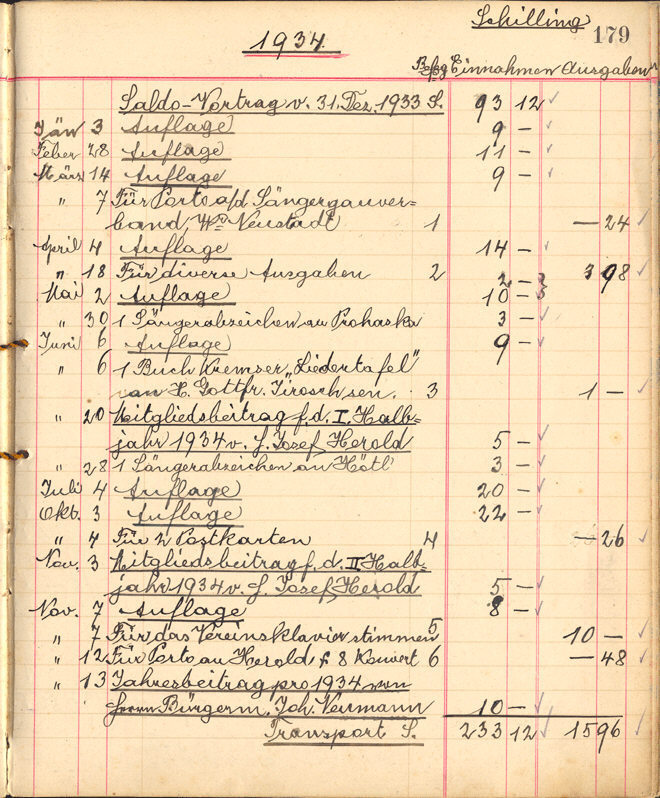 Schilling
179
1934.
Belg Einnahmen Ausgaben
Saldo-Vortrag v. 31. Dez. 1933 S. 93 12
Jän 3 Auflage 9 —
Feber 28 Auflage 11 —
März 14 Auflage 9 —
" 7 Für Porto a/d Sängergauver=
band, Wr. Neustadt 1 — 24
April 4 Auflage 14 —
" 18 Für diverse Ausgaben 2 2 — 3 98
Mai 2 Auflage 10 —
" 30 1 Sängerabzeichen an Prohaska 3 —
Juni 6 Auflage 9 —
" 6 1 Buch Kremser „Liedertafel"
an H. Gottfr. Jirosch sen. 3 1 —
" 20 Mitgliedsbeitrag f. d. I. Halb=
jahr 1934 v. H. Josef Herold 5 —
" 28 1 Sängerabzeichen an Hötl 3 —
Juli 4 Auflage 20 —
Okt. 3 Auflage 22 —
" 4 Für 2 Postkarten 4 — 26
Nov. 3 Mitgliedsbeitrag f. d. II Halb=
jahr 1934 v. H. Josef Herold 5 —
Nov. 7 Auflage 8 —
" 7 Für das Vereinsklavier stimmen 5 10 —
" 12 Für Porto an Herold f 8 Kuvert 6 — 48
" 13 Jahresbeitrag pro 1934 von
Herrn Bürgerm. Joh. Neumann 10 —
Transport S. 233 12 15 96